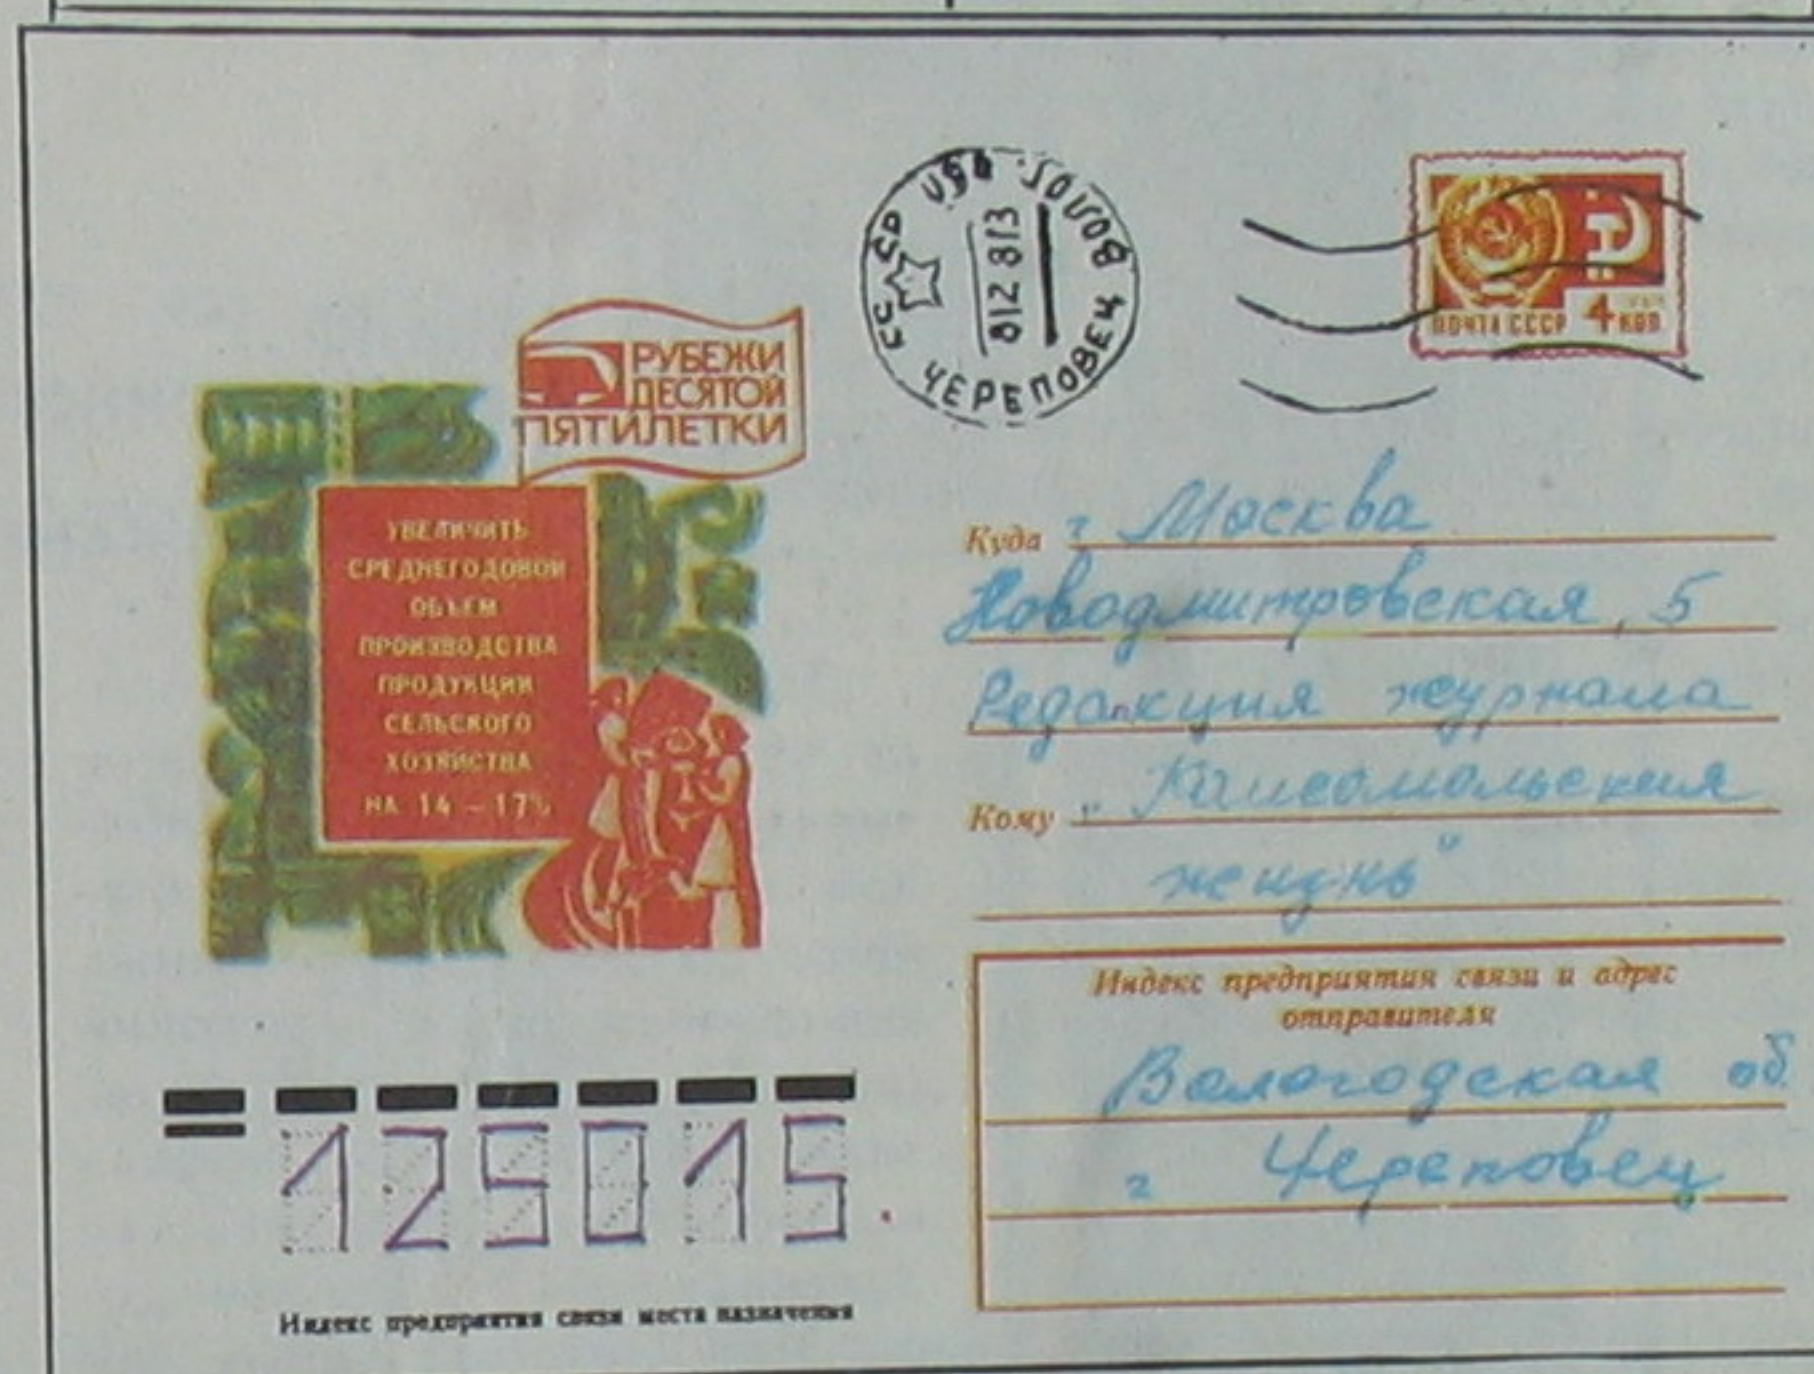 СССР
ЧЕРЕПОВЕЦ
ПОЧТА СССР 4 КОП
РУБЕЖИ
ДЕСЯТОЙ
ПЯТИЛЕТКИ
УВЕЛИЧИТЬ
СРЕДНЕГОДОВОЙ
ОБЪЕМ
ПРОИЗВОДСТВА
ПРОДУКЦИИ
СЕЛЬСКОГО
ХОЗЯЙСТВА
НА 14 – 17%
Куда г Москва
Новодмитровская, 5
Редакция журнала
Кому "Комсомольская
жизнь"
Индекс предприятия связи и адрес
отправителя
Вологодская об.
г Череповец
125015
Индекс предприятия связи места назначения